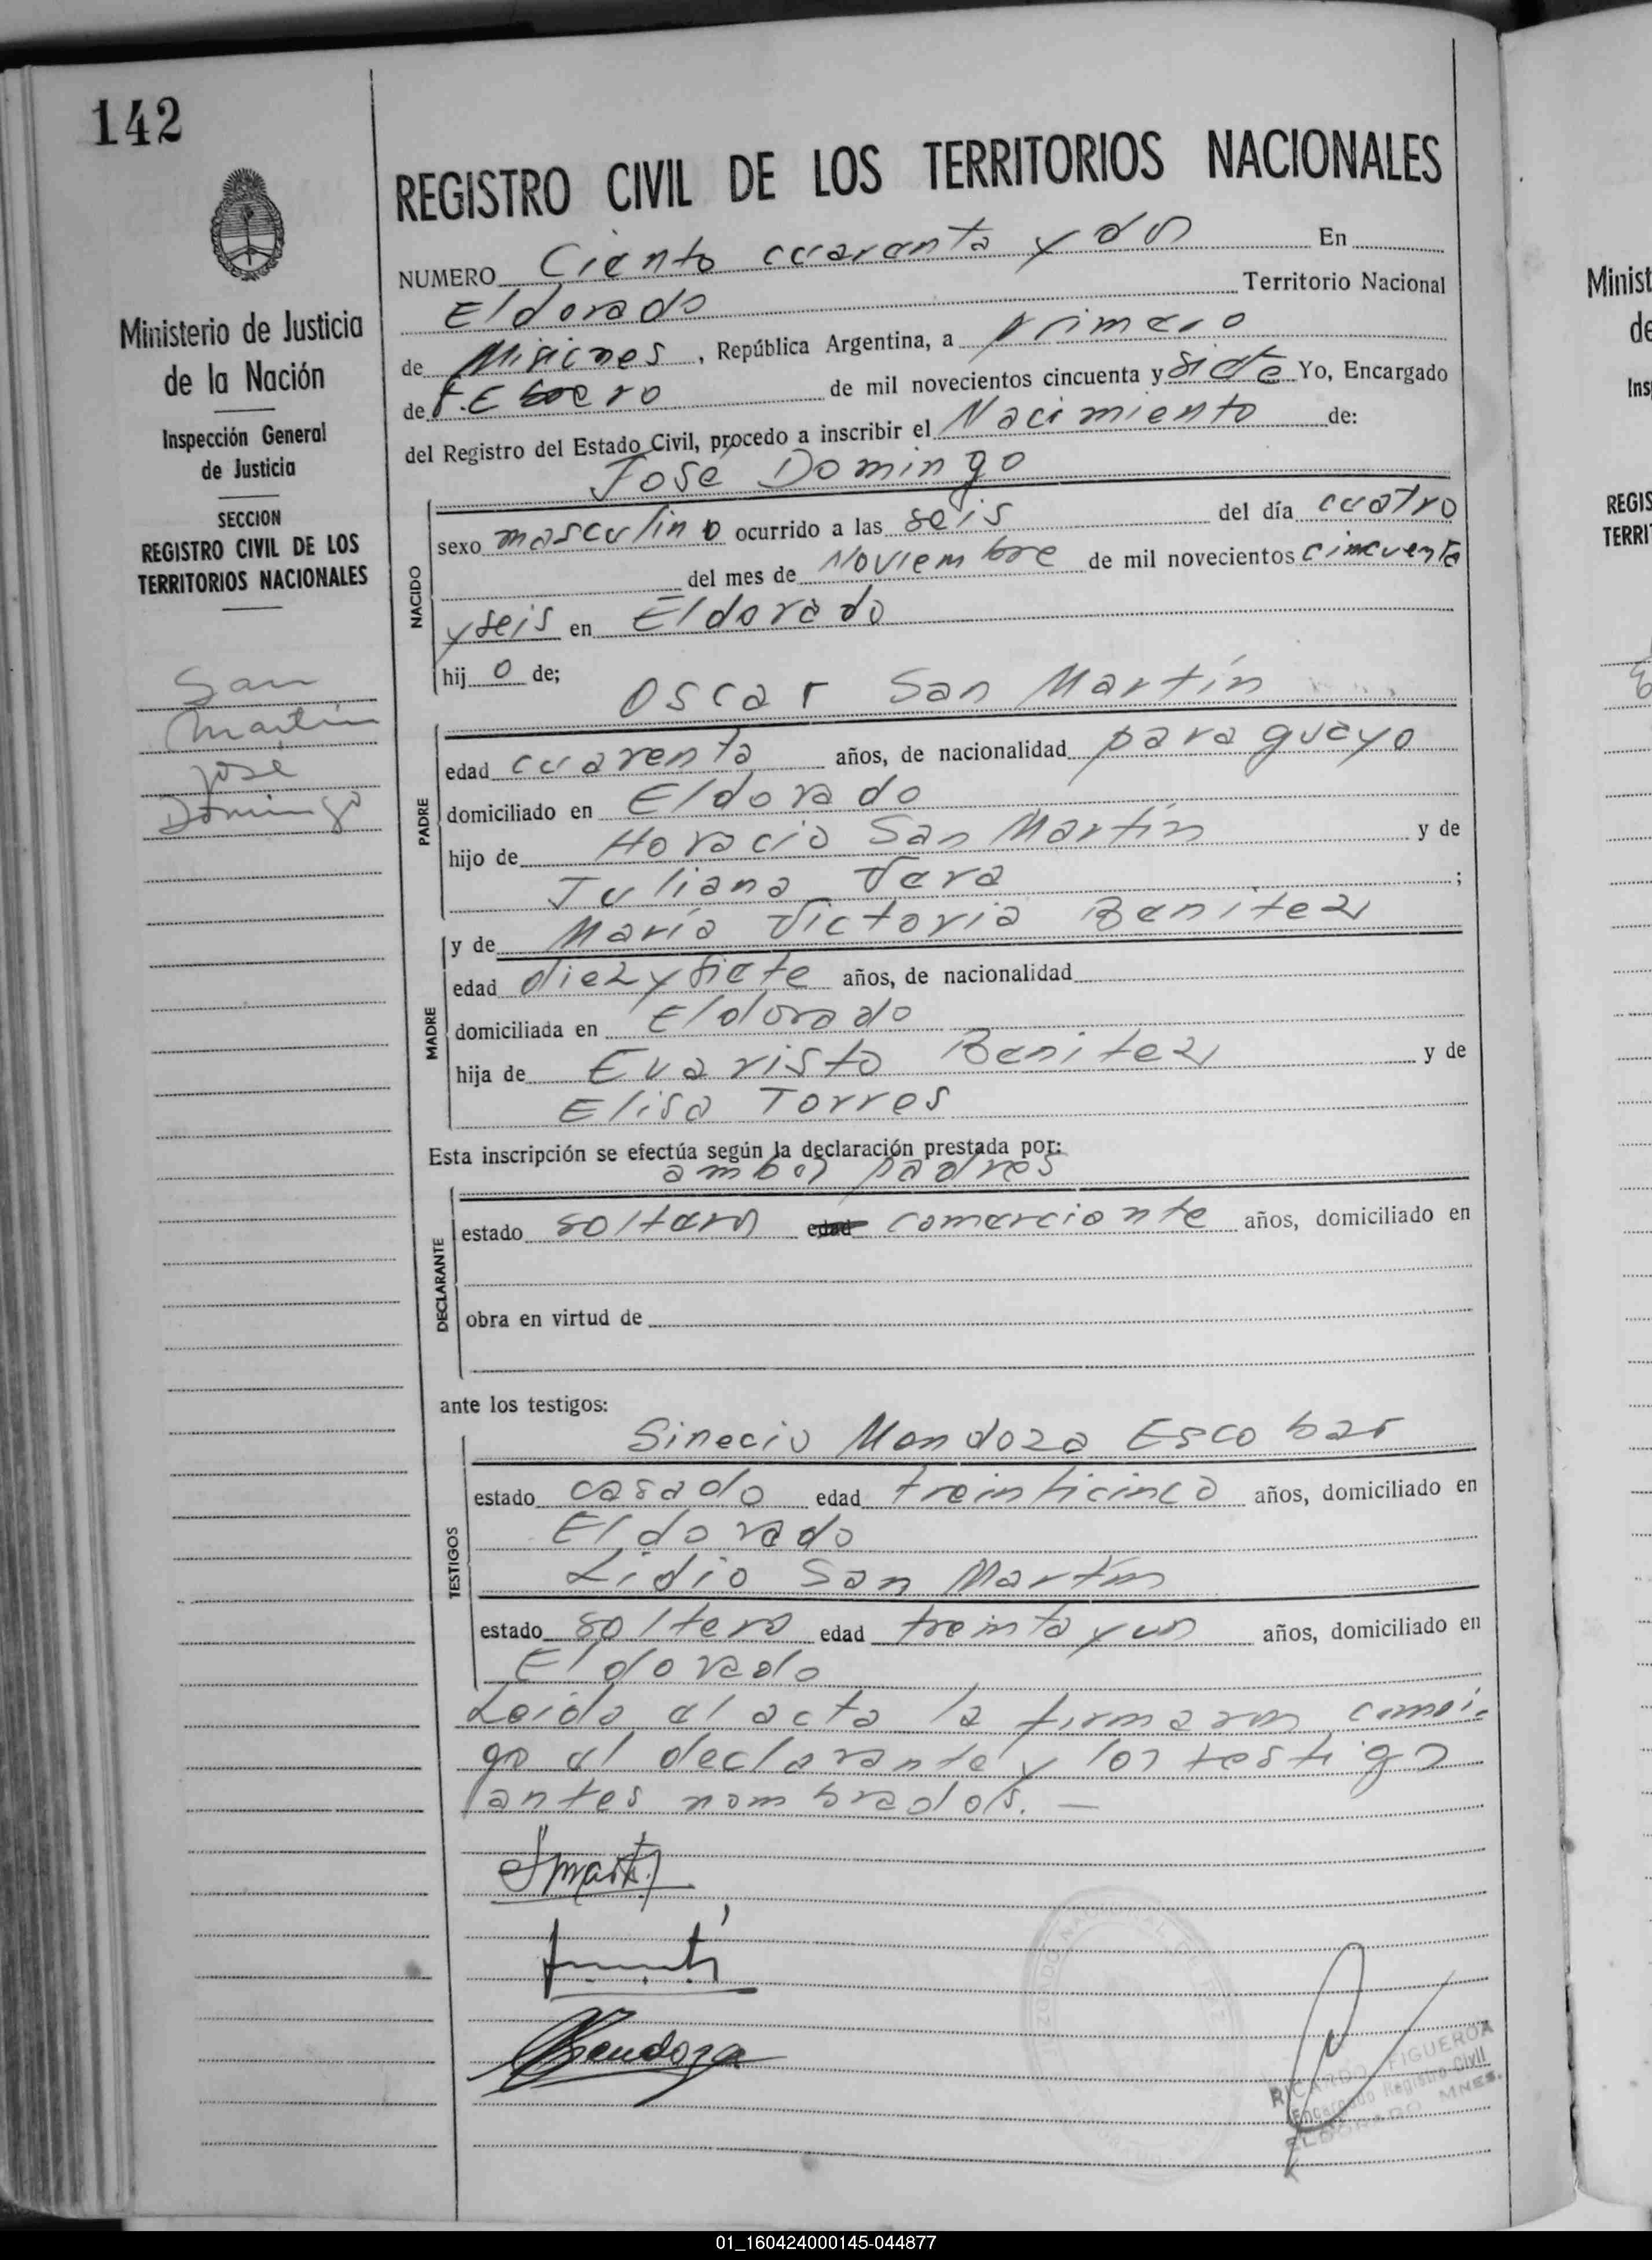 142
Ministerio de Justicia
de la Nación
Inspección General
de Justicia
SECCION
REGISTRO CIVIL DE LOS
TERRITORIOS NACIONALES
San
Martin
José
Domingo
REGISTRO CIVIL DE LOS TERRITORIOS NACIONALES
NUMERO Ciento cuarenta y dos En
Eldorado Territorio Nacional
de Misiones, República Argentina, a primero
de Febrero de mil novecientos cincuenta y siete Yo, Encargado
del Registro del Estado Civil, procedo a inscribir el Nacimiento de:
José Domingo
NACIDO
sexo masculino ocurrido a las seis del día cuatro
del mes de Noviembre de mil novecientos cincuenta
y seis en Eldorado
hij o de;
Oscar San Martín
PADRE
edad cuarenta años, de nacionalidad paraguayo
domiciliado en Eldorado
hijo de Horacio San Martín y de
Juliana Vera ;
MADRE
y de María Victoria Benitez
edad diez y siete años, de nacionalidad
domiciliada en Eldorado
hija de Evaristo Benitez y de
Elisa Torres
Esta inscripción se efectúa según la declaración prestada por:
ambos padres
DECLARANTE
estado solteros edad comerciante años, domiciliado en
obra en virtud de
ante los testigos:
TESTIGOS
Sinecio Mendoza Escobar
estado casado edad treinticinco años, domiciliado en
Eldorado
Lidio San Martín
estado soltero edad treinta y un años, domiciliado en
Eldorado
Leida el acta la firmaron conmi-
go el declarante y los testigos
antes nombrados. —
Mendoza
RICARDO FIGUEROA
Encargado Registro Civil
ELDORADO MNES.
Minist
de
Ins
REGIS
TERRI
01_160424000145-044877